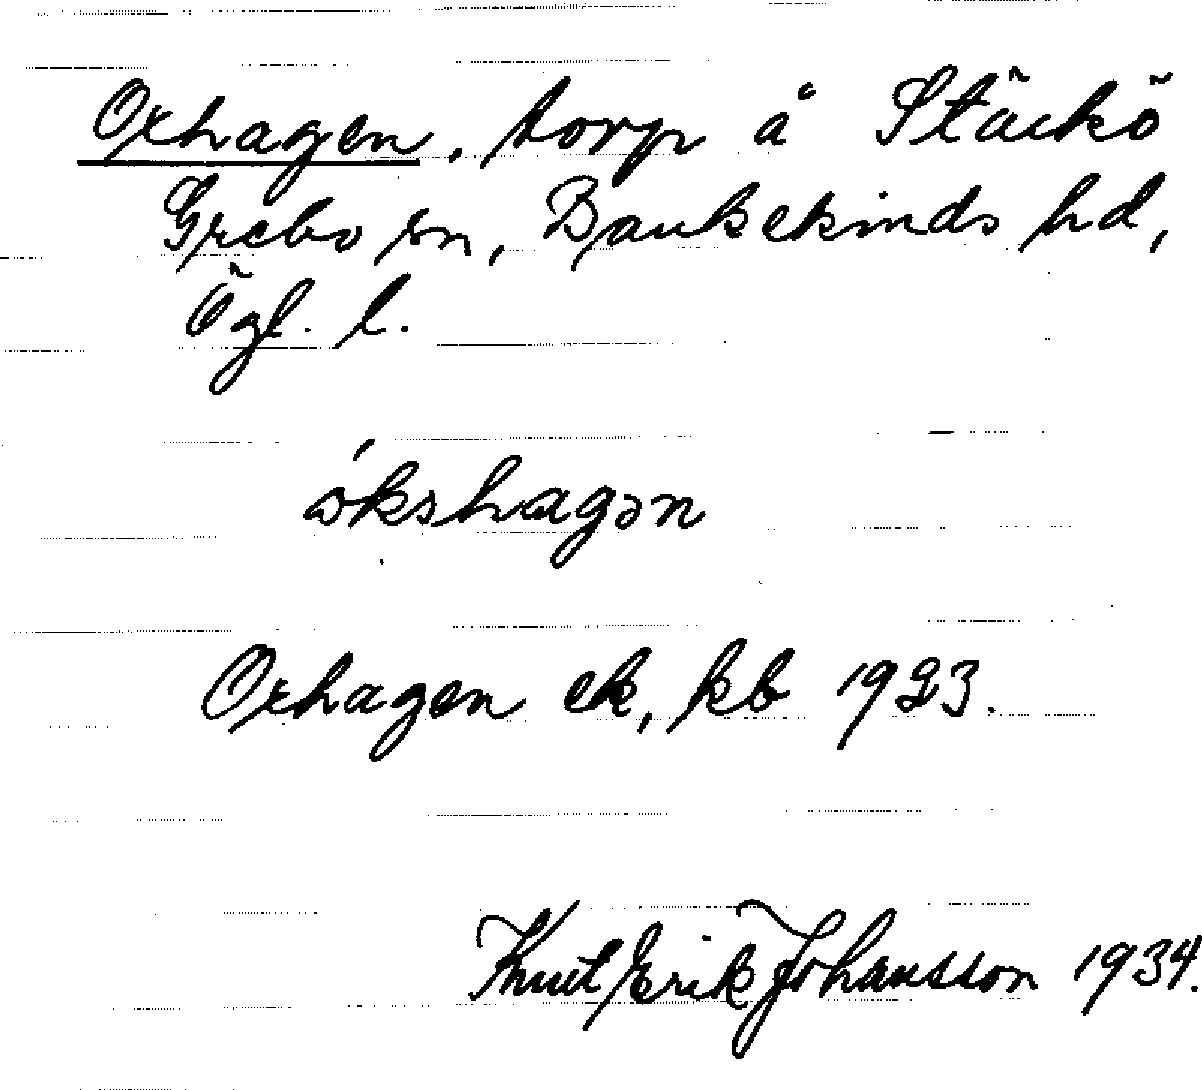 Oxhagen, torp å Stäckö
Grebo sn, Bankekinds hd,
Ögl. l.
ókshagən
Oxhagen ek, kb 1923.
Knut Erik Johansson 1934.